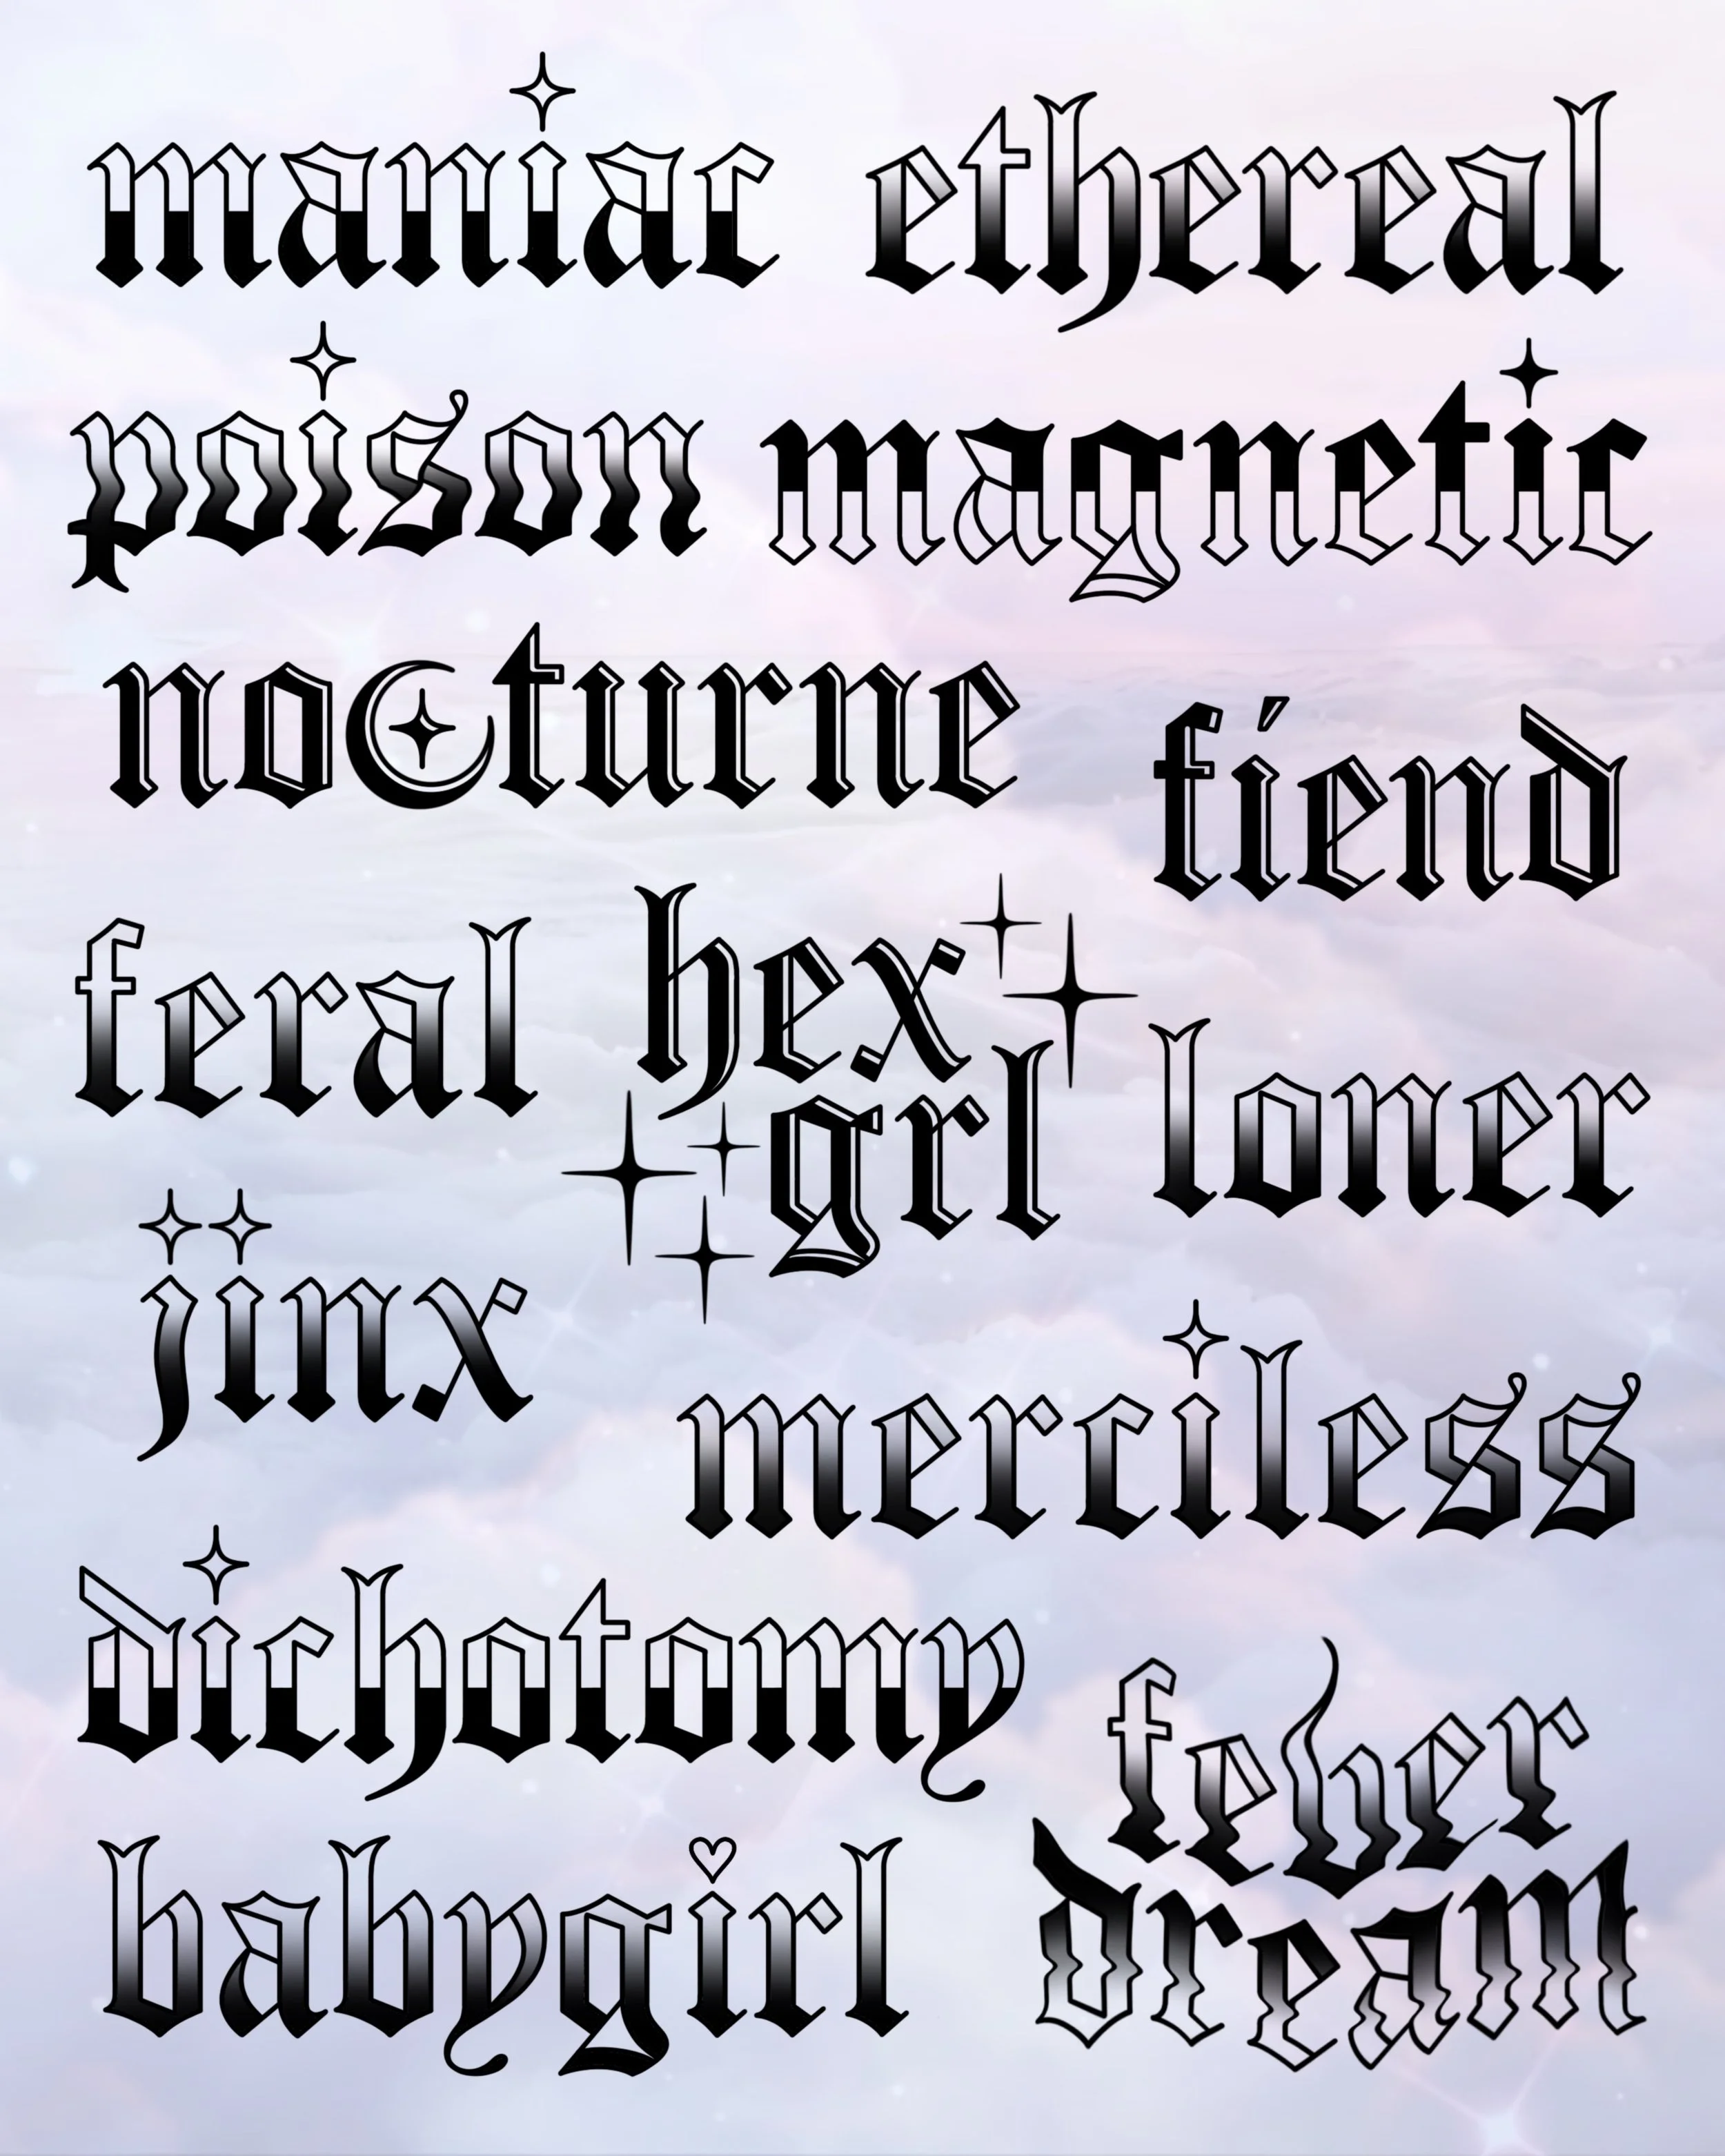 maniac ethereal
poison magnetic
nocturne
fiend
feral
hex
grl
loner
jinx
merciless
dichotomy
fever
dream
babygirl